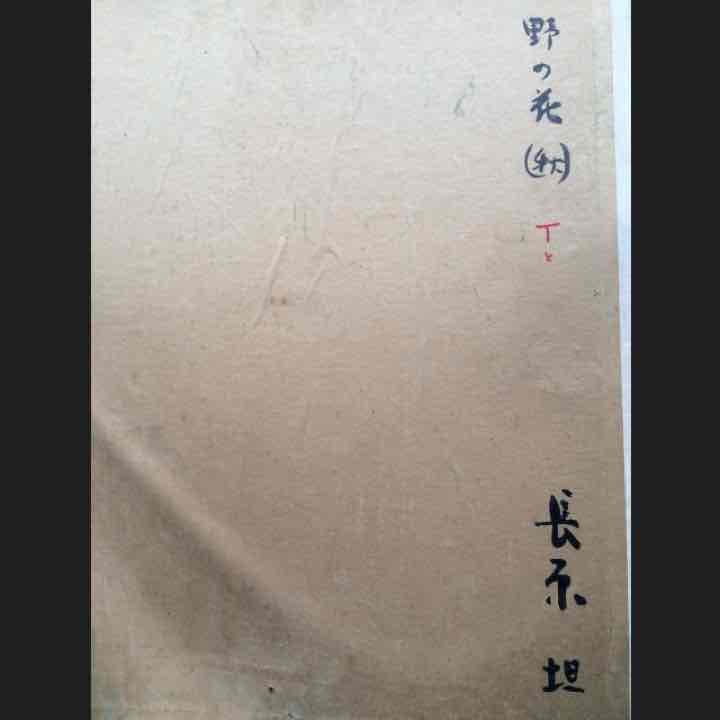 野の花(秋)
Tと
長原 坦